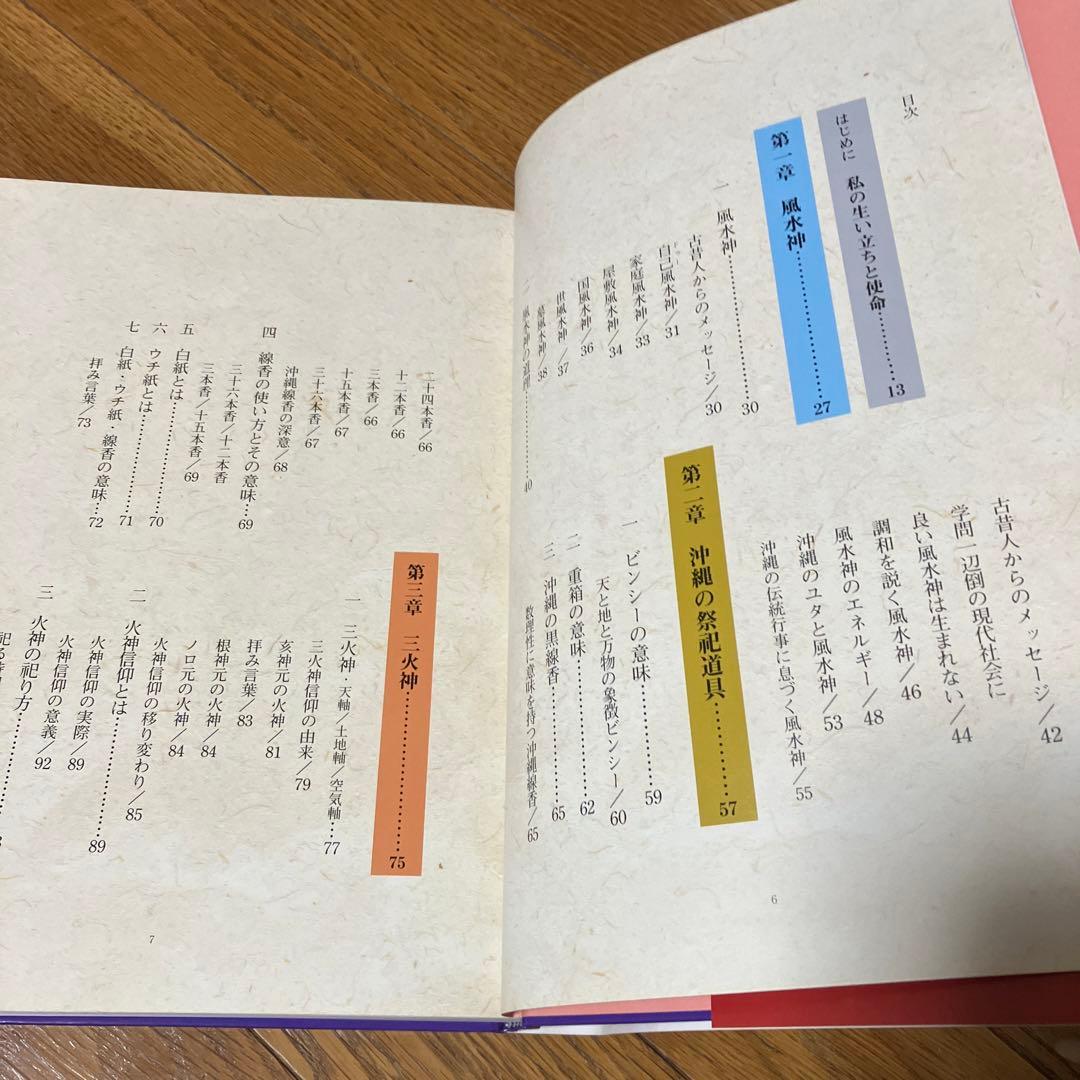 目次
はじめに 私の生い立ちと使命…………13
第一章 風水神…………27
一 風水神…………30
古昔人からのメッセージ/30
自己風水神/31
家庭風水神/33
屋敷風水神/34
国風水神/36
世風水神/37
墓風水神/38
二 風水神の道理…………40
古昔人からのメッセージ/42
学問一辺倒の現代社会に
良い風水神は生まれない/44
調和を説く風水神/46
風水神のエネルギー/48
沖縄のユタと風水神/53
沖縄の伝統行事に息づく風水神/55
第二章 沖縄の祭祀道具…………57
一 ビンシーの意味…………59
天と地と万物の象徴ビンシー/60
二 重箱の意味…………62
三 沖縄の黒線香…………65
数理性に意味を持つ沖縄線香/65
6
二十四本香/66
十二本香/66
三本香/66
十五本香/67
三十六本香/67
沖縄線香の深意/68
四 線香の使い方とその意味…69
三十六本香/十二本香
三本香/十五本香/69
五 白紙とは…………70
六 ウチ紙とは…………71
七 白紙・ウチ紙・線香の意味…72
拝み言葉/73
第三章 三火神…………75
一 三火神・天軸/土地軸/空気軸…77
三火神信仰の由来/79
亥神元の火神/81
拝み言葉/83
根神元の火神/84
ノロ元の火神/84
火神信仰の移り変わり/85
二 火神信仰とは…………89
火神信仰の実際/89
火神信仰の意義/92
三 火神の祀り方…………
7